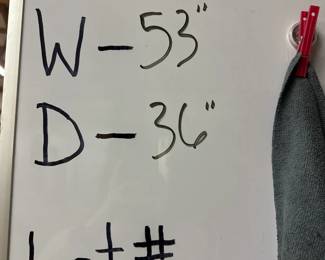 W - 53"
D - 36"
Lot #